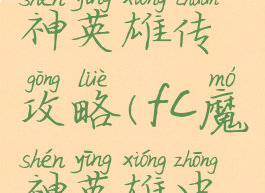 shén yīng xióng zhuàn
神英雄传
gōng lüè mó
攻略(fc魔
shén yīng xióng zhōng
神英雄中